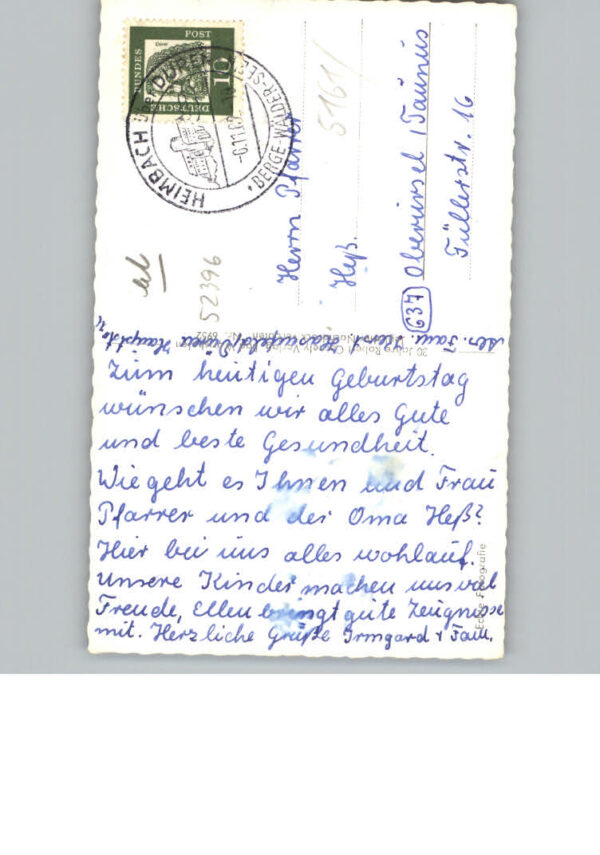 DEUTSCHE
BUNDES
POST
10
HEIMBACH über DÜREN
BERGE-WÄLDER-SEEN
5161/
Herrn Pfarrer
Heß.
637 Oberursel / Taunus
Füllerstr. 16
52396
Zum heutigen Geburtstag
wünschen wir alles Gute
und beste Gesundheit.
Wie geht es Ihnen und Frau
Pfarrer und der Oma Heß?
Hier bei uns alles wohlauf.
Unsere Kinder machen uns viel
Freude, Ellen bringt gute Zeugnisse
mit. Herzliche Grüße Irmgard + Fam.